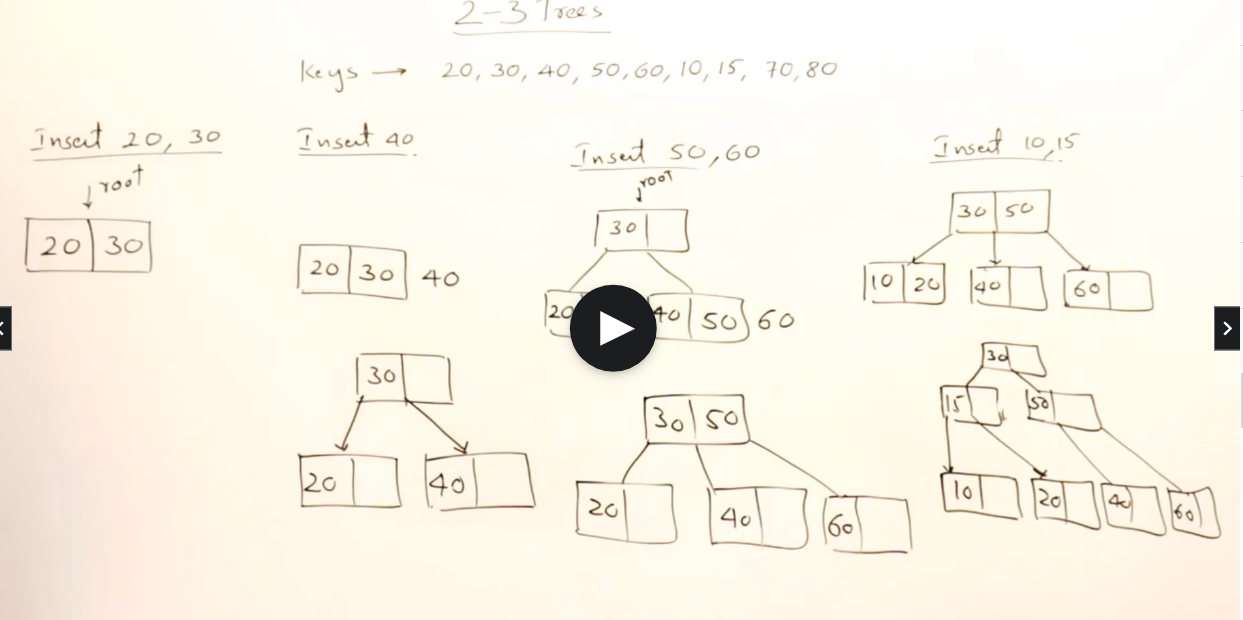 2-3 Trees
Keys → 20, 30, 40, 50, 60, 10, 15, 70, 80
Insert 20, 30
root
20 30
Insert 40
20 30 40
30
20 40
Insert 50, 60
root
30
20 40 50 60
30 50
20 40 60
Insert 10, 15
30 50
10 20 40 60
30
15 50
10 20 40 60